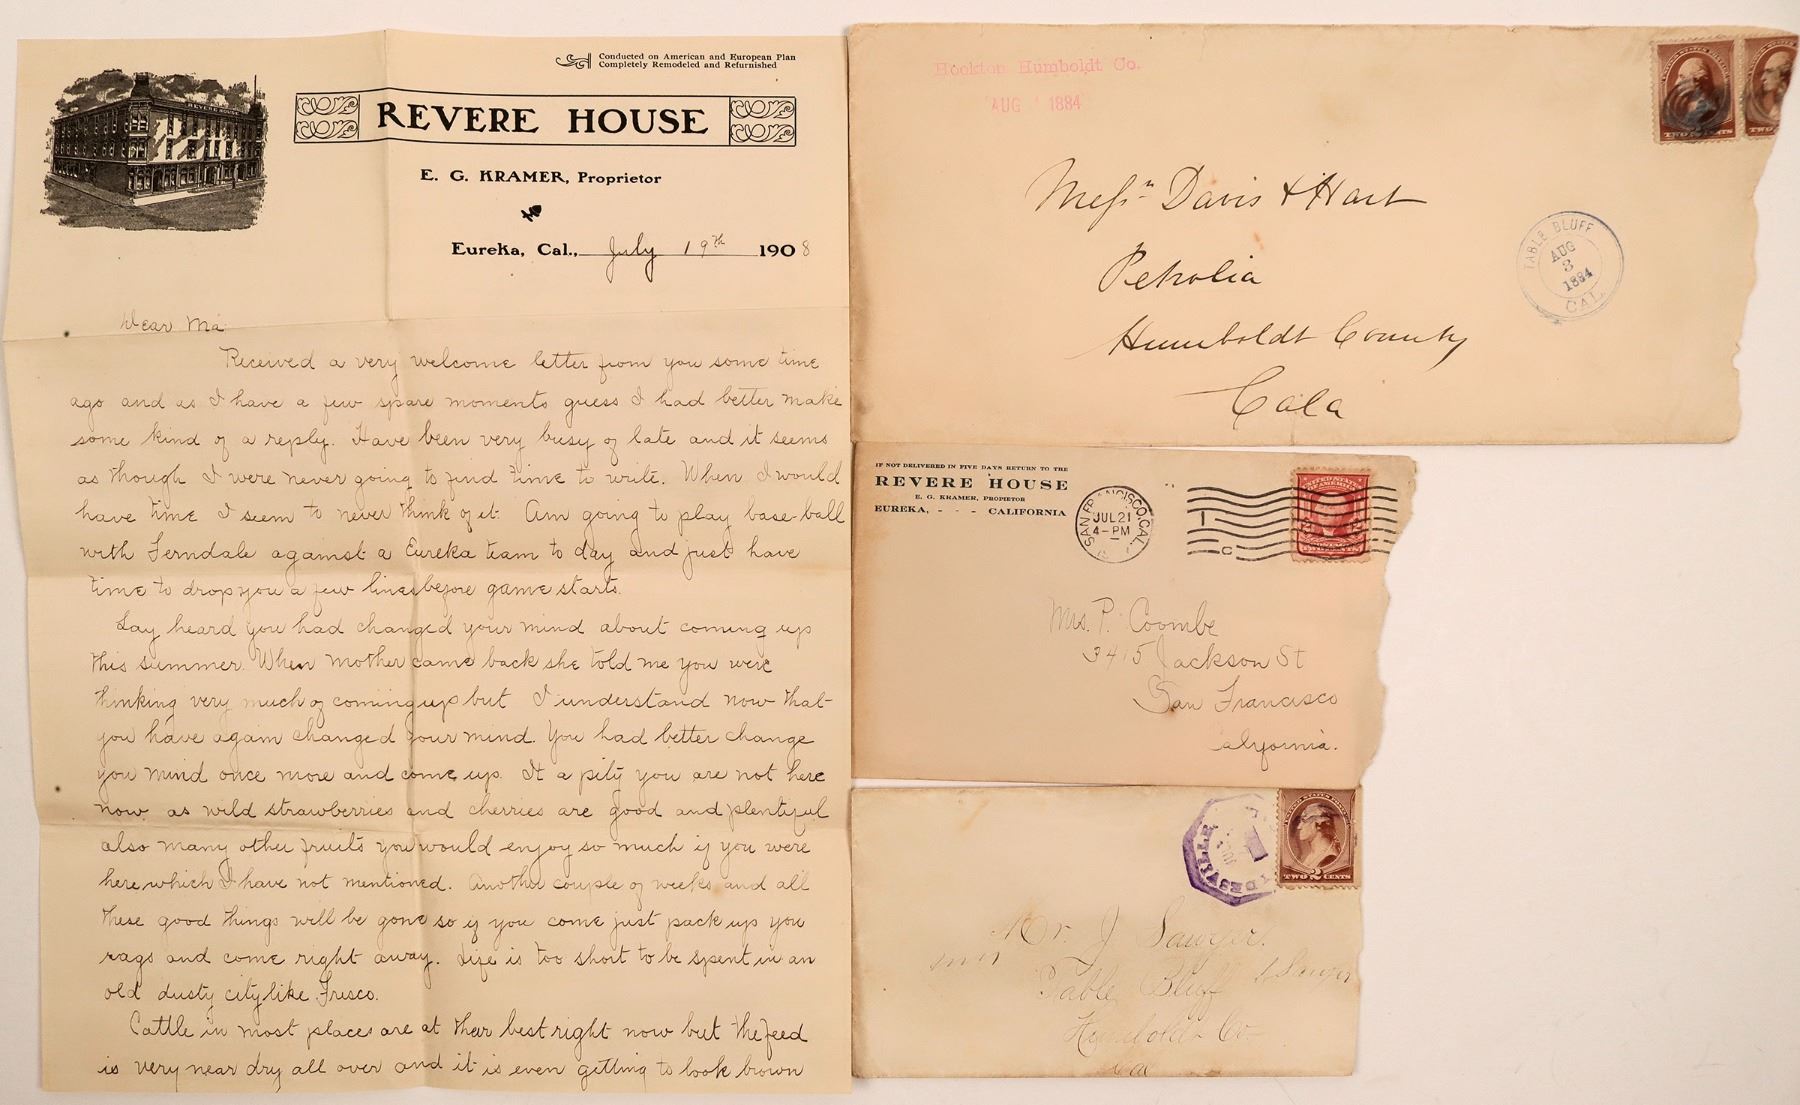 Conducted on American and European Plan
Completely Remodeled and Refurnished
REVERE HOUSE
REVERE HOUSE
E. G. KRAMER, Proprietor
Eureka, Cal., July 19th 1908
Dear Ma
Received a very welcome letter from you some time
ago and as I have a few spare moments guess I had better make
some kind of a reply. Have been very busy of late and it seems
as though I were never going to find time to write. When I would
have time I seem to never think of it. Am going to play base-ball
with Ferndale against a Eureka team to day and just have
time to drop you a few lines before game starts.
Say heard you had changed your mind about coming up
this summer. When mother came back she told me you were
thinking very much of coming up but I understand now that
you have again changed your mind. You had better change
you mind once more and come up. It a pity you are not here
now as wild strawberries and cherries are good and plentiful
also many other fruits you would enjoy so much if you were
here which I have not mentioned. Another couple of weeks and all
these good things will be gone so if you come just pack up you
rags and come right away. Life is too short to be spent in an
old dusty city like Frisco.
Cattle in most places are at their best right now but the feed
is very near dry all over and it is even getting to look brown
Hookton Humboldt Co.
AUG 1 1884
TWO CENTS
TWO
Messrs Davis & Hart
Petrolia
Humboldt County
Cala
TABLE BLUFF
AUG
3
1884
CAL.
IF NOT DELIVERED IN FIVE DAYS RETURN TO THE
REVERE HOUSE
E. G. KRAMER, PROPIETOR
EUREKA, - - - CALIFORNIA
SAN FRANCISCO, CAL.
JUL 21
4-PM
1
C
UNITED STATES
OF AMERICA
TWO CENTS
Mrs. P. Coombe
3415 Jackson St
San Francisco
California.
DESVILLE
TWO 2 CENTS
Mr. J Sawyer.
Table Bluff
Humboldt Co
Cal